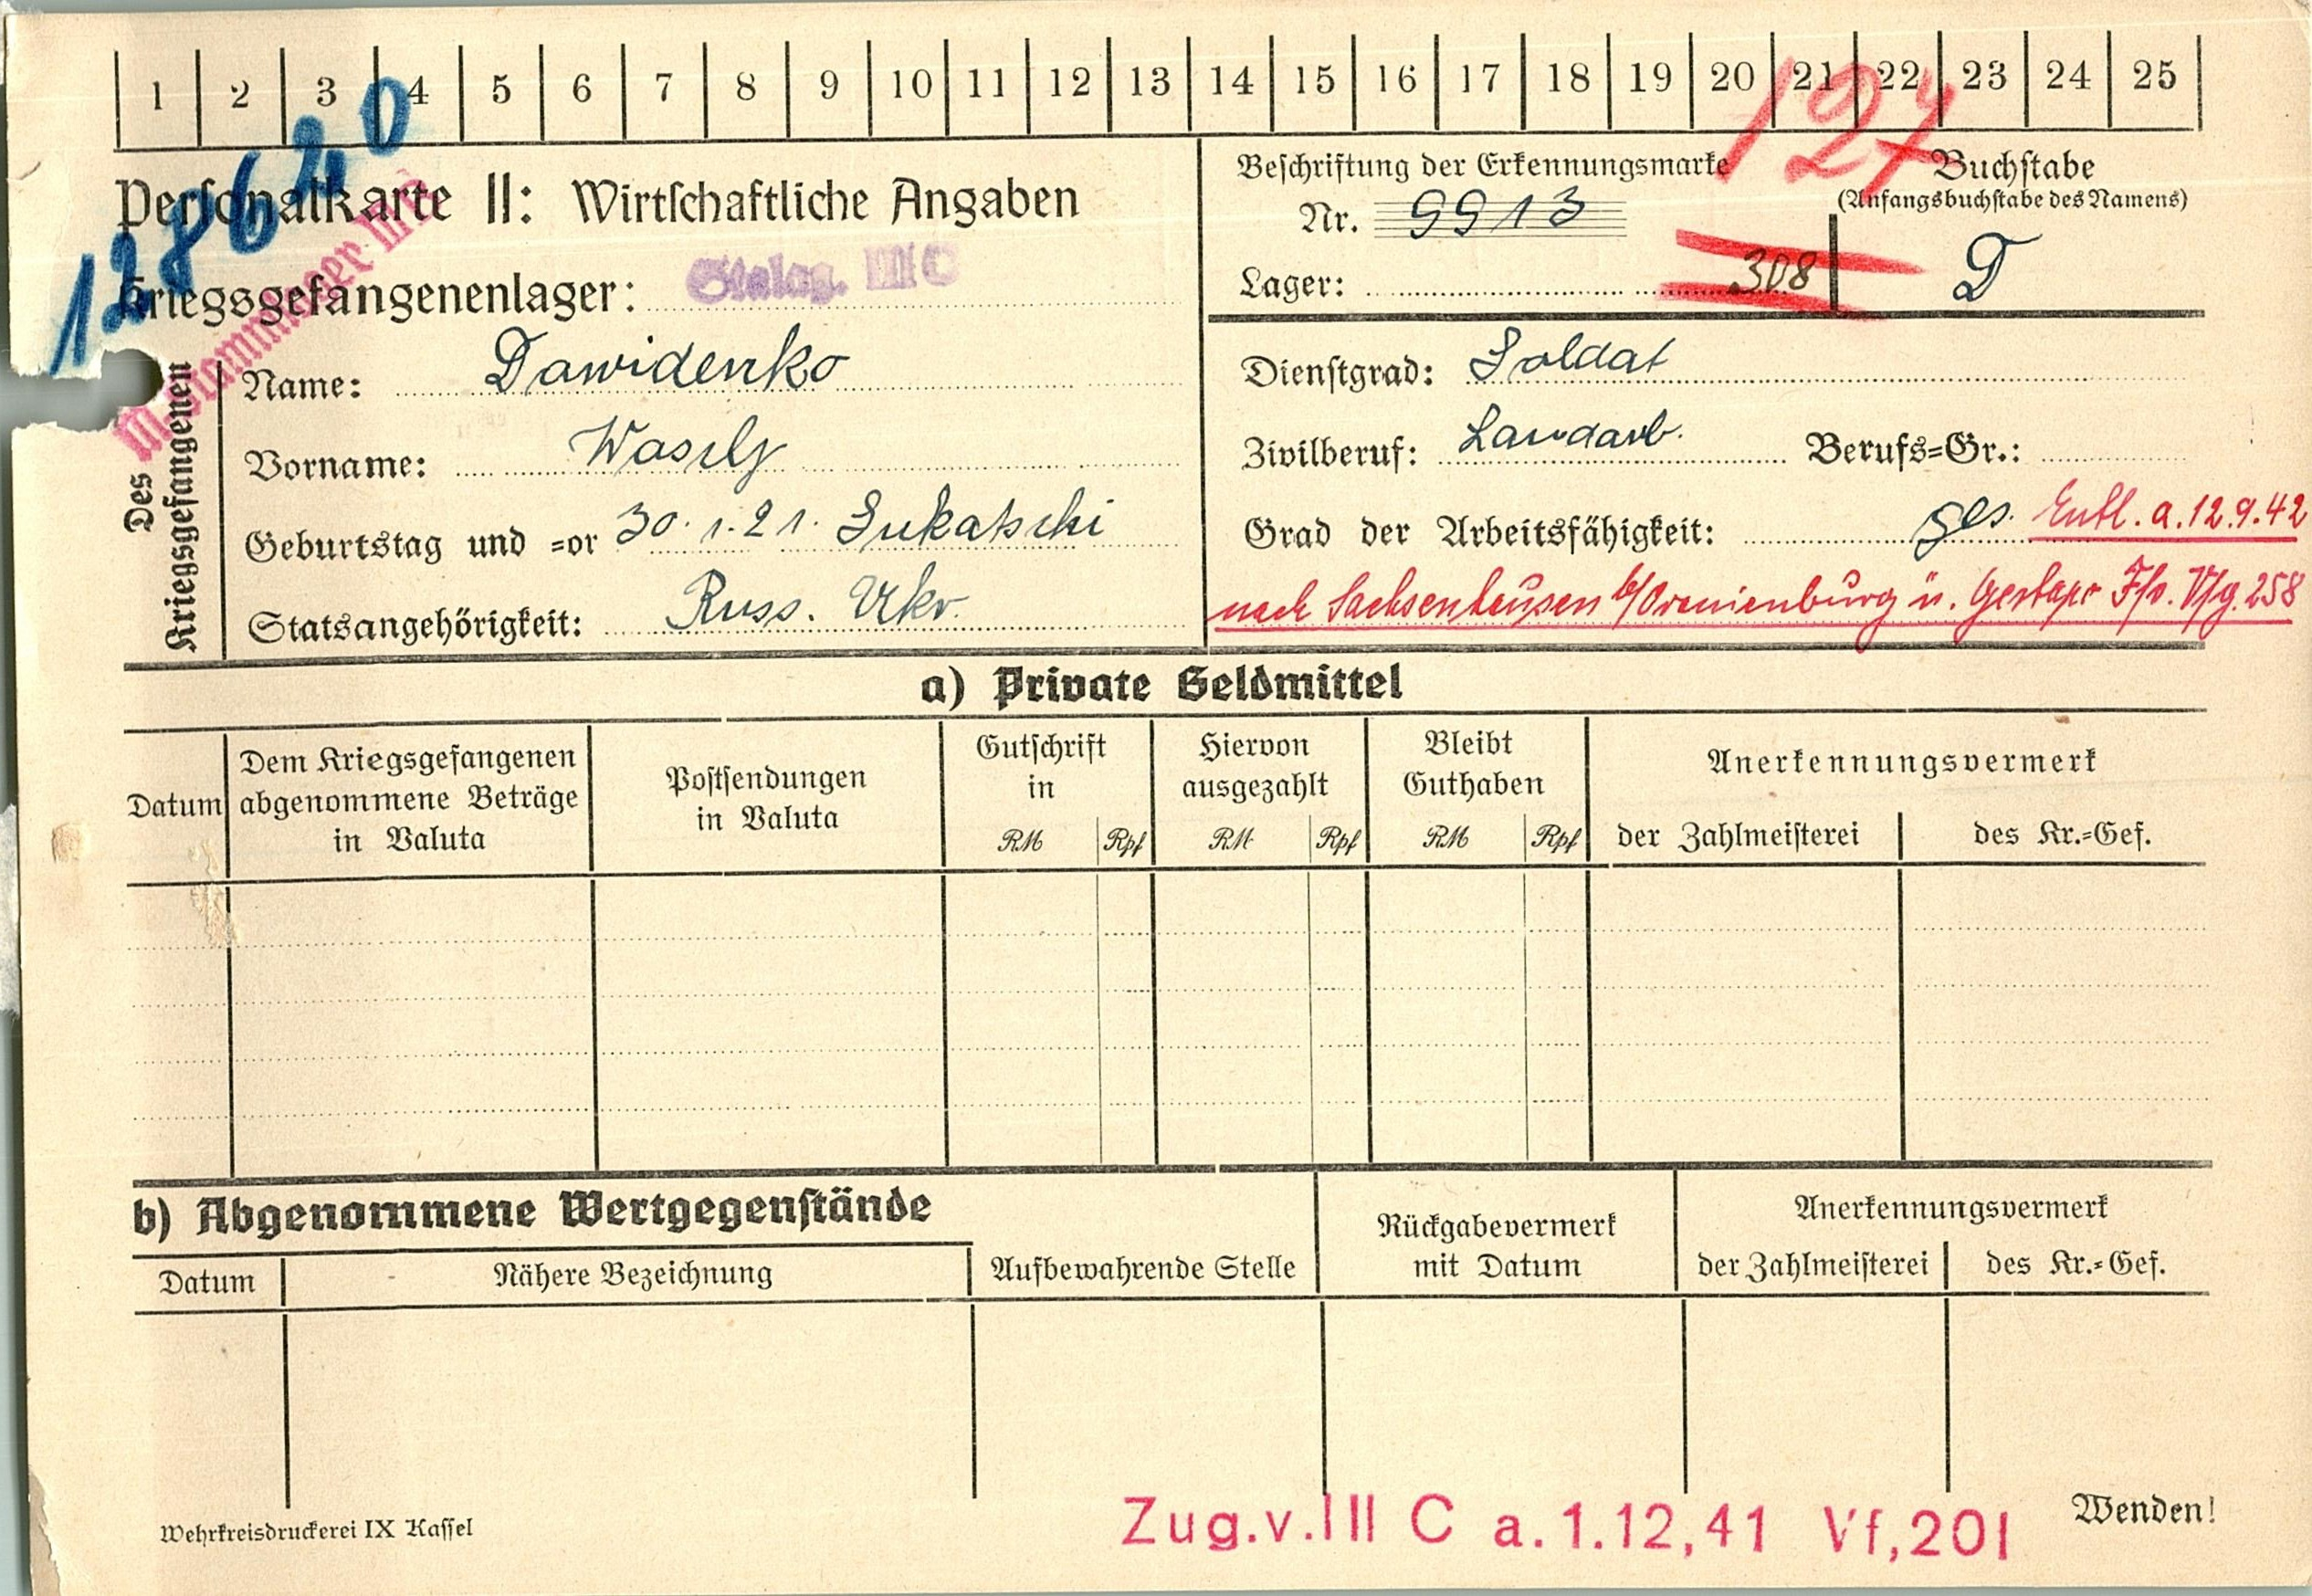 1 2 3 4 5 6 7 8 9 10 11 12 13 14 15 16 17 18 19 20 21 22 23 24 25
Personalkarte II: Wirtschaftliche Angaben
Kriegsgefangenenlager: Stalag. III C
Beschriftung der Erkennungsmarke
Nr. 9913
Lager: 308
Buchstabe
(Anfangsbuchstabe des Namens)
D
Des
Kriegsgefangenen
Name: Dawidenko
Vorname: Wasily
Geburtstag und =or 30.1.21. Lukatschi
Statsangehörigkeit: Russ. Ukr.
Dienstgrad: Soldat
Zivilberuf: Landarb. Berufs=Gr.:
Grad der Arbeitsfähigkeit: ges. Entl. a. 12.9.42
nach Sachsenhausen b/Oranienburg ü. Gestapo F/o. Vfg. 258
a) Private Geldmittel
Datum
Dem Kriegsgefangenen
abgenommene Beträge
in Valuta
Postsendungen
in Valuta
Gutschrift
in
RM Rpf
Hiervon
ausgezahlt
RM Rpf
Bleibt
Guthaben
RM Rpf
Anerkennungsvermerk
der Zahlmeisterei
des Kr.=Gef.
b) Abgenommene Wertgegenstände
Datum
Nähere Bezeichnung
Aufbewahrende Stelle
Rückgabevermerk
mit Datum
Anerkennungsvermerk
der Zahlmeisterei
des Kr.=Gef.
Zug.v.III C a.1.12,41 Vf,201
Wehrkreisdruckerei IX Kassel
Wenden!